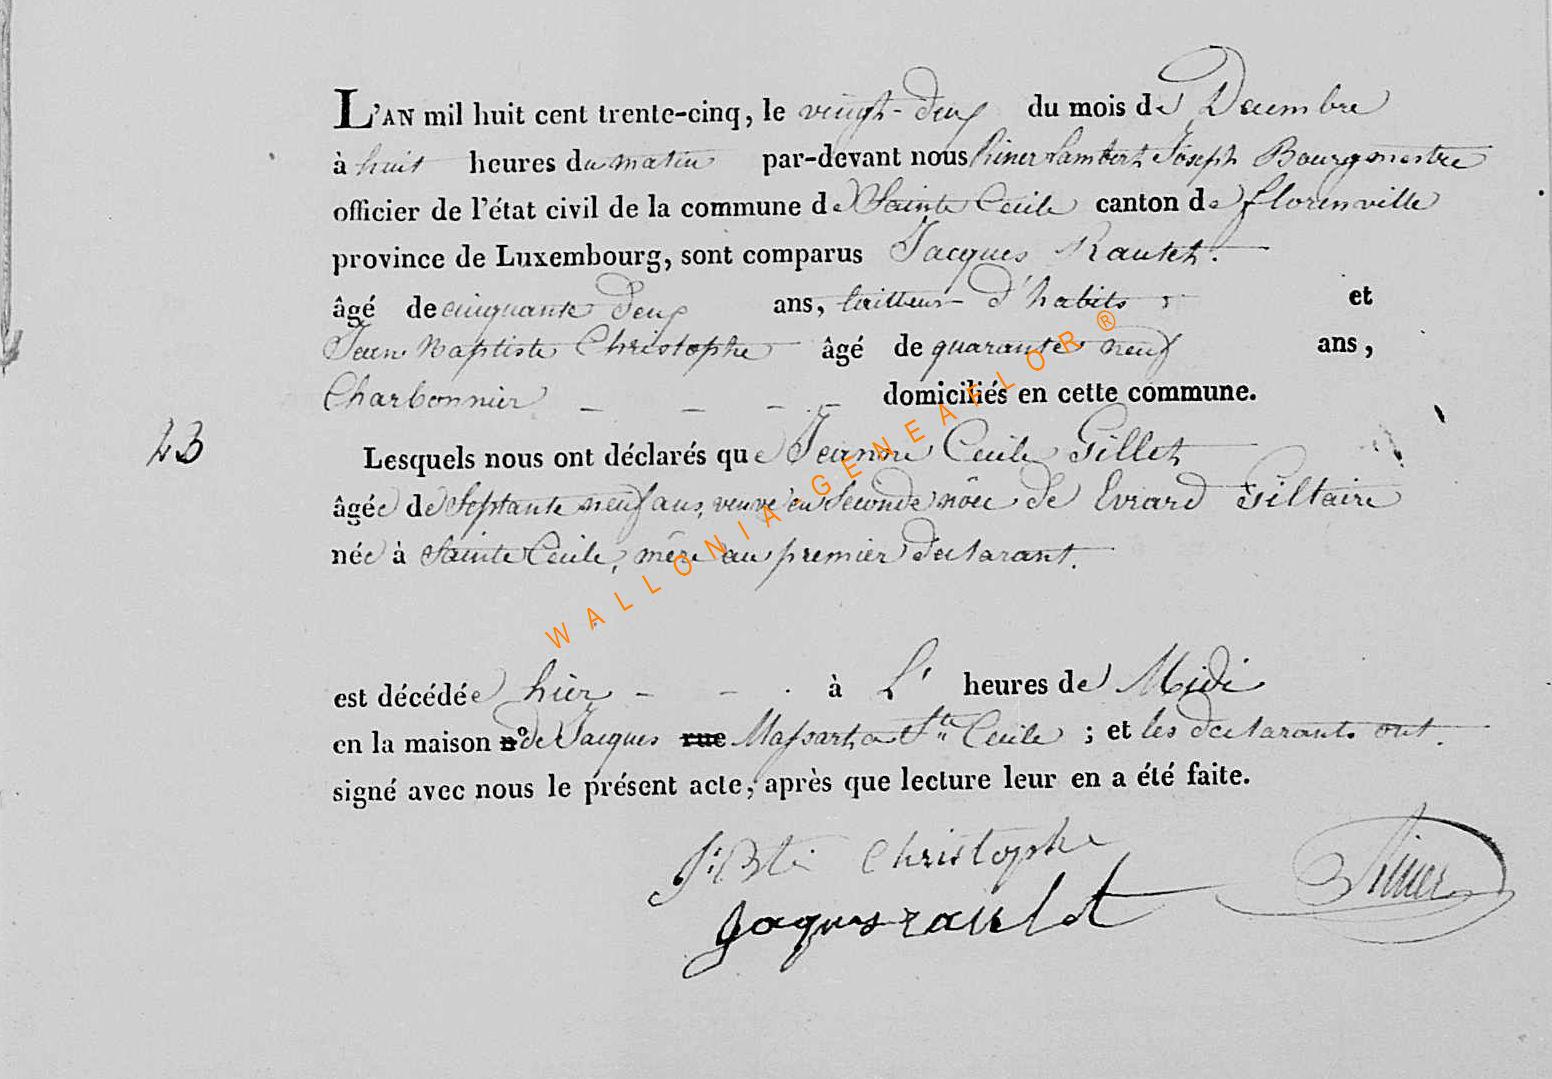 L'AN mil huit cent trente-cinq, le vingt-deux du mois de Decembre
à huit heures du matin par-devant nous Riner Lambert Joseph Bourgmestre
officier de l'état civil de la commune de Sainte Cecile canton de florenville
province de Luxembourg, sont comparus Jacques Rautet.
âgé de cinquante deux ans, tailleur d'habits et
Jean Baptiste Christophe âgé de quarante neuf ans,
Charbonnier _ _ _ _ domiciliés en cette commune.
23
Lesquels nous ont déclarés que Jeanne Cecile Gillet
âgée de septante neuf ans, veuve en seconde nôce de Evrard Giltaire
née à Sainte Cecile, mère au premier déclarant.
est décédée hier - - . à L' heures de Midi
en la maison n° de Jacques rue Massart a Ste Cecile ; et les déclarants ont.
signé avec nous le présent acte, après que lecture leur en a été faite.
J: Bte Christophe
Jaques rautet
Riner
WALLONIA-GENEAFLOR ®